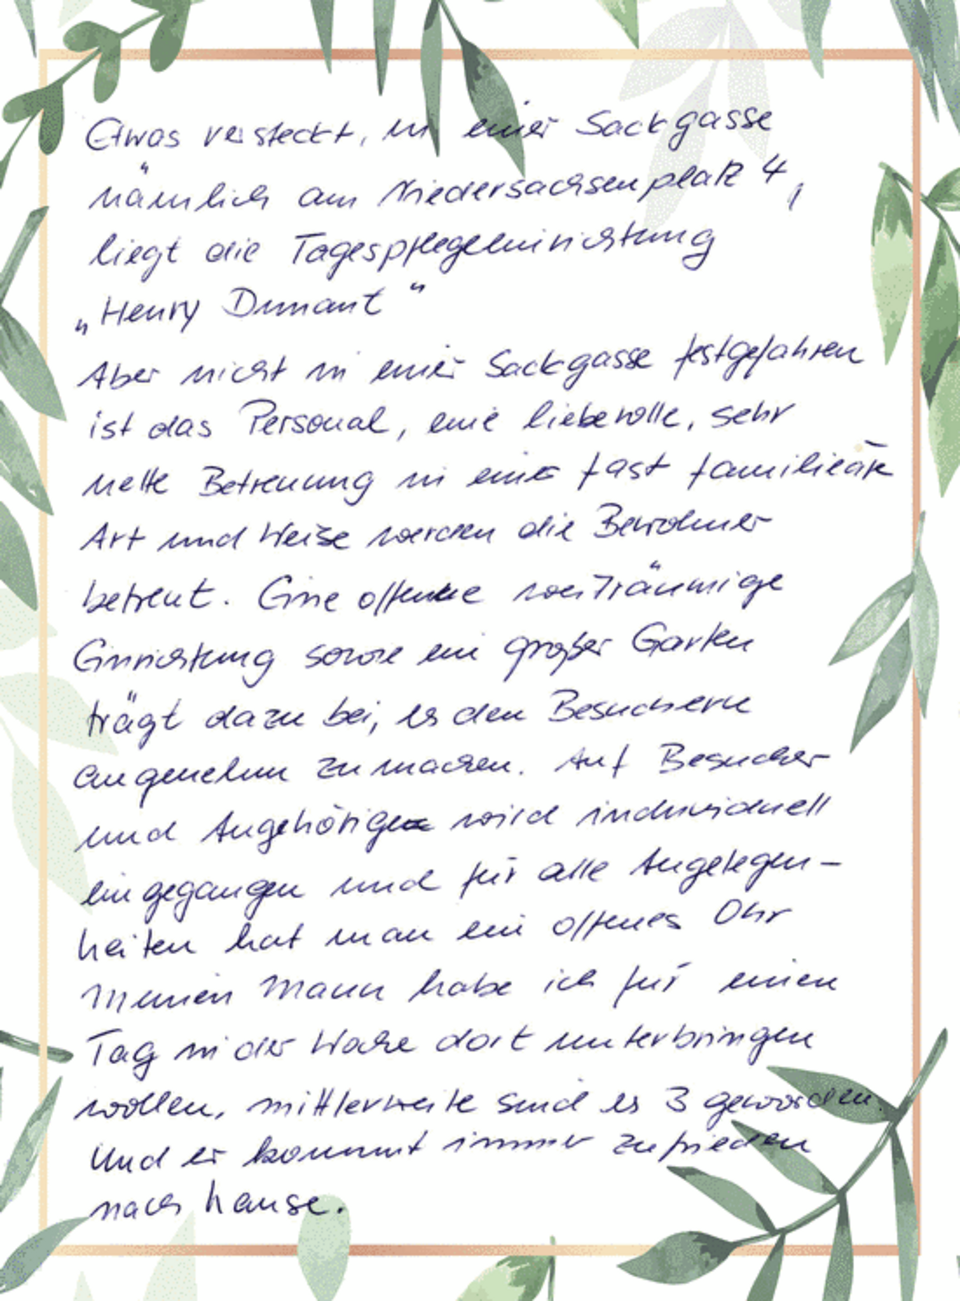 Etwas versteckt, in einer Sackgasse
nämlich am Niedersachsenplatz 4,
liegt die Tagespflegeeinrichtung
„Henry Dunant“
Aber nicht in einer Sackgasse festgefahren
ist das Personal, eine liebevolle, sehr
nette Betreuung in eine fast familieär
Art und Weise werden die Bewohner
betreut. Eine offene weiträumige
Einrichtung sowie ein großer Garten
trägt dazu bei, es den Besuchern
angenehm zu machen. Auf Besucher
und Angehörige wird individuell
eingegangen und für alle Angelegen-
heiten hat man ein offenes Ohr
Meinen Mann habe ich für einen
Tag in der Woche dort unterbringen
wollen, mittlerweile sind es 3 geworden.
Und er kommt immer zufrieden
nach hause.